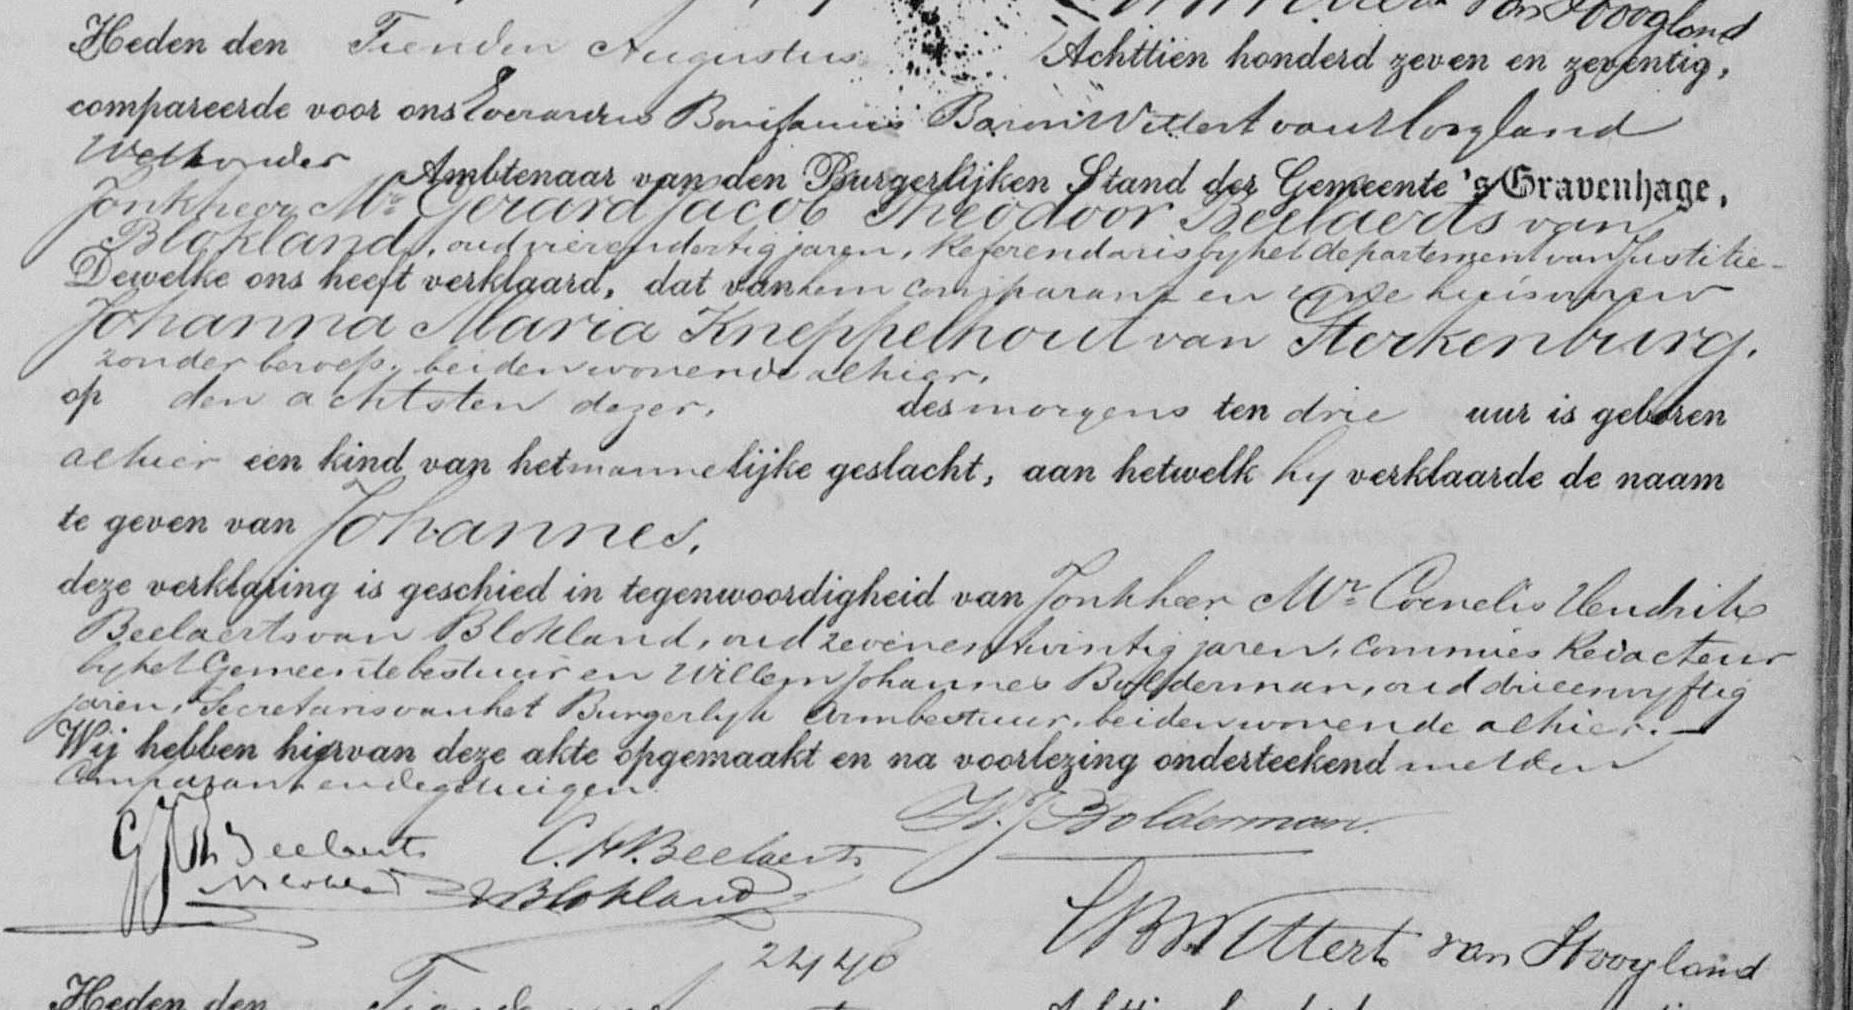 van Hoogland
Heden den Tienden Augustus Achttien honderd zeven en zeventig,
compareerde voor ons Everardus Bonifacius Baron Wittert van Hoogland
Wethouder Ambtenaar van den Burgerlijken Stand der Gemeente 's Gravenhage,
Jonkheer Mr. Gerard Jacob Theodoor Beelaerts van
Blokland, oud vierendertig jaren, Referendaris by het departement van Justitie
Dewelke ons heeft verklaard, dat van hem comparant en zyne huisvrouw
Johanna Maria Kneppelhout van Sterkenburg,
zonder beroep, beiden wonende alhier,
op den achtsten dezer, des morgens ten drie uur is geboren
alhier een kind van het mannelijke geslacht, aan hetwelk hy verklaarde de naam
te geven van Johannes.
deze verklaring is geschied in tegenwoordigheid van Jonkheer Mr. Cornelis Hendrik
Beelaerts van Blokland, oud zevenentwintig jaren, commies Redacteur
by het Gemeentebestuur en Willem Johannes Bolderman, oud drieenvyftig
jaren, Secretaris van het Burgerlyk Armbestuur, beiden wonende alhier.
Wij hebben hiervan deze akte opgemaakt en na voorlezing onderteekend met den
Comparant en de getuigen.
W. J. Bolderman.
GJTh Beelaerts C. H. Beelaerts
v Blokland v Blokland
EB Wittert van Hoogland
2440
Heden den Tienden